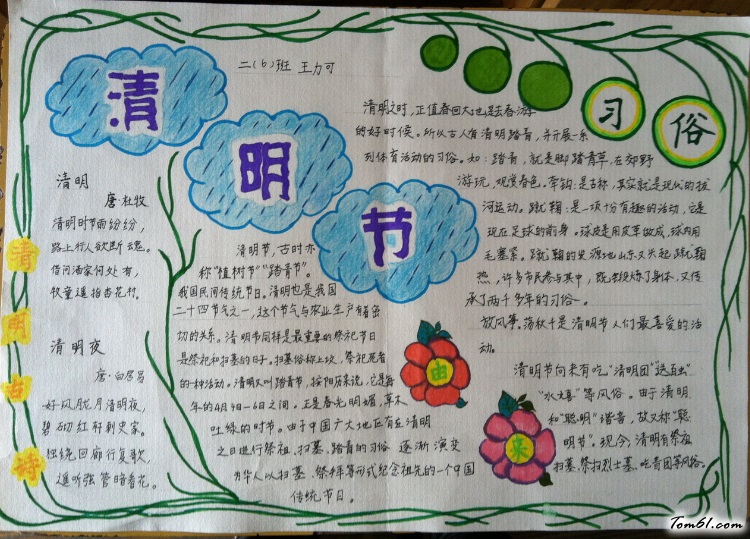 二(6)班 王力可
清明节
清明古诗
清明
唐·杜牧
清明时节雨纷纷,
路上行人欲断魂。
借问酒家何处有,
牧童遥指杏花村。
清明夜
唐·白居易
好风胧月清明夜,
碧砌红轩刺史家。
独绕回廊行复歇,
遥听弦管暗看花。
由来
清明节,古时亦
称“植树节”“踏青节”。
我国民间传统节日。清明也是我国
二十四节气之一,这个节气与农业生产有着密
切的关系。清明节同样是最重要的祭祀节日
是祭祀和扫墓的日子。扫墓俗称上坟,祭祀死者
的一种活动。清明又叫踏青节,按阳历来说,它是每
年的4月4日—6日之间。正是春光明媚,草木
吐绿的时节。由于中国广大地区有在清明
之日进行祭祖、扫墓、踏青的习俗 逐渐演变
为华人以扫墓、祭拜等形式纪念祖先的一个中国
传统节日。
习俗
清明之时,正值春回大地是去春游
的好时候。所以古人有清明踏青,并开展一系
列体育活动的习俗。如:踏青,就是脚踏青草,在郊野
游玩,观赏春色。牵钩:是古称,其实就是现代的拔
河运动。蹴鞠:是一项十分有趣的活动,它是
现在足球的前身。球皮是用皮革做成,球内用
毛塞紧。蹴鞠的发源地山东又兴起蹴鞠
热,许多市民参与其中,既锻炼了身体,又传
承了两千多年的习俗。
放风筝、荡秋千是清明节人们最喜爱的活
动。
清明节向来有吃“清明团”
等风俗。由于清明
和“聪明”谐音,故又称“聪
明节”。现今,清明有祭祖
扫墓、祭扫烈士墓、吃青团等风俗。
Tom61.com